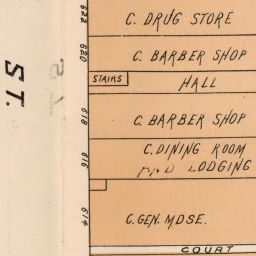 622
C. DRUG STORE
620
C. BARBER SHOP
STAIRS
HALL
ST.
618
C. BARBER SHOP
616
C. DINING ROOM
AND LODGING
614
C. GEN. MDSE.
COURT